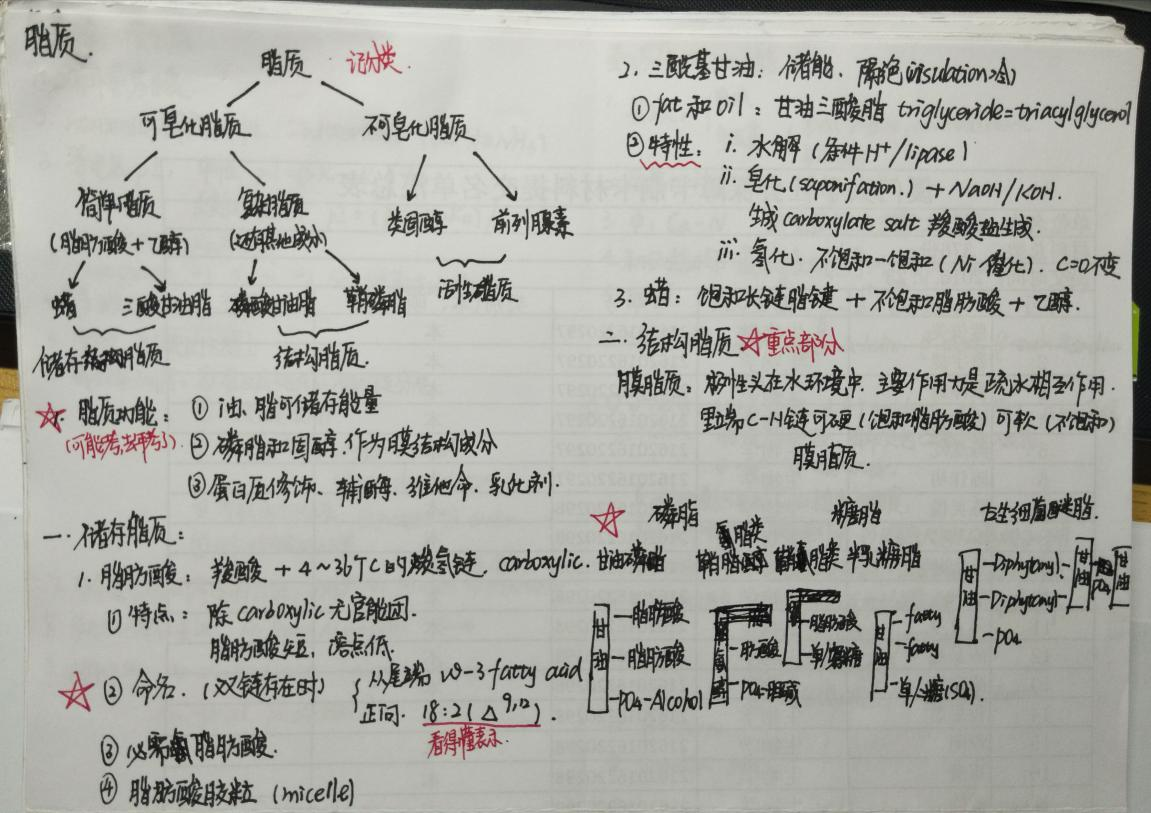 脂质.
脂质 记分类.
可皂化脂质 不可皂化脂质
简单脂质 复杂脂质 类固醇 前列腺素
(脂肪酸+乙醇) (还有其他成分)
蜡 三酸甘油脂 磷酸甘油脂 鞘磷脂 活性脂质
储存脂质 结构脂质.
脂质功能: ① 油、脂可储存能量
(可能考,去年考了) ② 磷脂和固醇.作为膜结构成分
③ 蛋白质修饰、辅酶、维他命、乳化剂.
一. 储存脂质:
1. 脂肪酸: 羧酸 + 4~36个C的碳氢链. carboxylic.
① 特点: 除carboxylic无官能团.
脂肪酸短, 熔点低.
② 命名. (双链存在时) 从尾端 ω-3 fatty acid
正向. 18:2(△9,12).
看得懂表示.
③ 必需脂肪酸.
④ 脂肪酸胶粒 (micelle)
2. 三酰基甘油: 储能、隔绝(insulation)
① fat和oil: 甘油三酸脂 triglyceride=triacylglycerol
② 特性: i. 水解 (条件H+/lipase)
ii. 皂化(saponifation.) + NaOH/KOH.
生成carboxylate salt 羧酸盐生成.
iii. 氢化. 不饱和—饱和 (Ni催化). C=O不变
3. 蜡: 饱和长链脂键 + 不饱和脂肪酸 + 乙醇.
二. 结构脂质 重点部分
膜脂质: 在水环境中. 主要作用力是疏水相互作用.
C-H链可硬(饱和脂肪酸)可软(不饱和)
膜脂质.
磷脂 糖脂 古生细菌醚类脂.
甘油磷脂 鞘脂醇 半乳糖脂
甘油 —脂肪酸 —脂肪酸 —PO4-Alcohol
—肪酸 —PO4-胆碱
—脂肪酸 单/寡糖
甘油 —fatty —fatty —单/糖(SO4).
甘油 —Diphytanyl— —Diphytanyl— —PO4 甘油 PO4 甘油